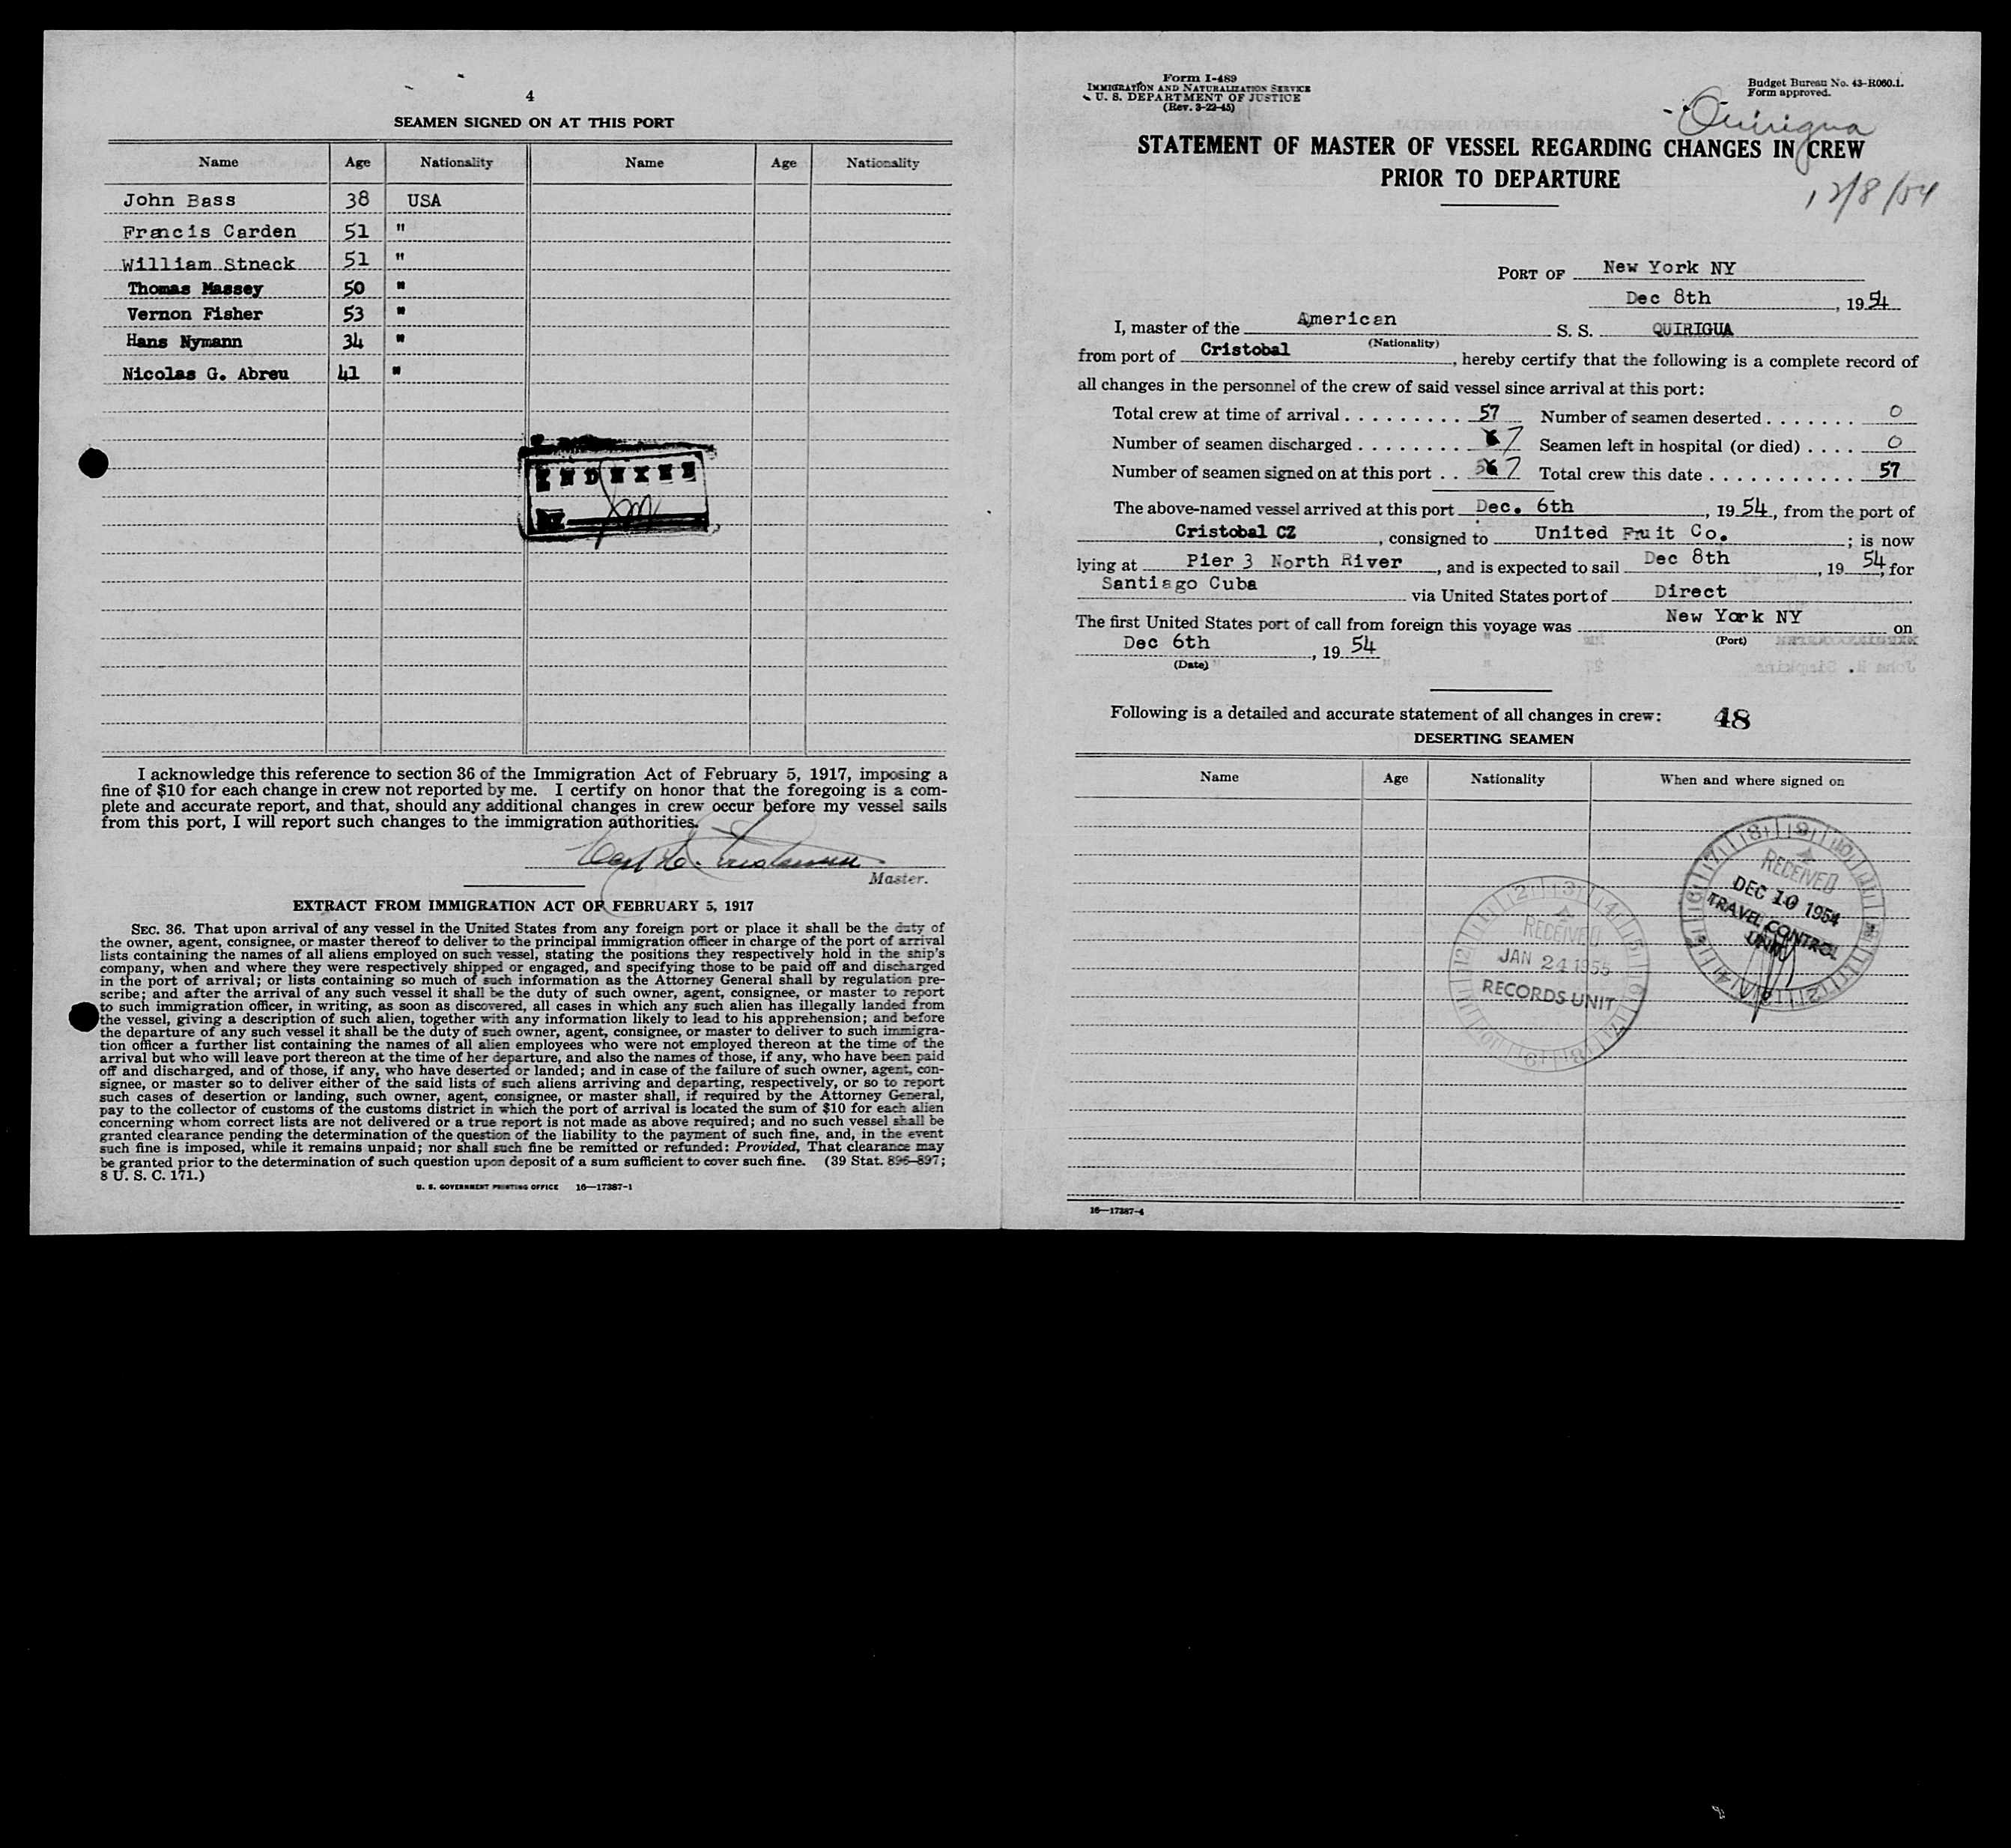 4
SEAMEN SIGNED ON AT THIS PORT
Name Age Nationality Name Age Nationality
John Bass 38 USA
Francis Carden 51 "
William Stneck 51 "
Thomas Massey 50 "
Vernon Fisher 53 "
Hans Nymann 34 "
Nicolas G. Abreu 41 "
I acknowledge this reference to section 36 of the Immigration Act of February 5, 1917, imposing a
fine of $10 for each change in crew not reported by me. I certify on honor that the foregoing is a com-
plete and accurate report, and that, should any additional changes in crew occur before my vessel sails
from this port, I will report such changes to the immigration authorities.
Master.
EXTRACT FROM IMMIGRATION ACT OF FEBRUARY 5, 1917
SEC. 36. That upon arrival of any vessel in the United States from any foreign port or place it shall be the duty of
the owner, agent, consignee, or master thereof to deliver to the principal immigration officer in charge of the port of arrival
lists containing the names of all aliens employed on such vessel, stating the positions they respectively hold in the ship's
company, when and where they were respectively shipped or engaged, and specifying those to be paid off and discharged
in the port of arrival; or lists containing so much of such information as the Attorney General shall by regulation pre-
scribe; and after the arrival of any such vessel it shall be the duty of such owner, agent, consignee, or master to report
to such immigration officer, in writing, as soon as discovered, all cases in which any such alien has illegally landed from
the vessel, giving a description of such alien, together with any information likely to lead to his apprehension; and before
the departure of any such vessel it shall be the duty of such owner, agent, consignee, or master to deliver to such immigra-
tion officer a further list containing the names of all alien employees who were not employed thereon at the time of the
arrival but who will leave port thereon at the time of her departure, and also the names of those, if any, who have been paid
off and discharged, and of those, if any, who have deserted or landed; and in case of the failure of such owner, agent, con-
signee, or master so to deliver either of the said lists of such aliens arriving and departing, respectively, or so to report
such cases of desertion or landing, such owner, agent, consignee, or master shall, if required by the Attorney General,
pay to the collector of customs of the customs district in which the port of arrival is located the sum of $10 for each alien
concerning whom correct lists are not delivered or a true report is not made as above required; and no such vessel shall be
granted clearance pending the determination of the question of the liability to the payment of such fine, and, in the event
such fine is imposed, while it remains unpaid; nor shall such fine be remitted or refunded: Provided, That clearance may
be granted prior to the determination of such question upon deposit of a sum sufficient to cover such fine. (39 Stat. 896-897;
8 U. S. C. 171.)
U. S. GOVERNMENT PRINTING OFFICE 16—17387-1
Form I-489
IMMIGRATION AND NATURALIZATION SERVICE
U. S. DEPARTMENT OF JUSTICE
(Rev. 3-22-45)
Budget Bureau No. 43-R060.1.
Form approved.
Quirigua
STATEMENT OF MASTER OF VESSEL REGARDING CHANGES IN CREW
PRIOR TO DEPARTURE
12/8/54
PORT OF New York NY
Dec 8th, 1954
I, master of the American S. S. QUIRIGUA
(Nationality)
from port of Cristobal, hereby certify that the following is a complete record of
all changes in the personnel of the crew of said vessel since arrival at this port:
Total crew at time of arrival . . . . . . . . . . 57 Number of seamen deserted . . . . . . . 0
Number of seamen discharged . . . . . . . . . 7 Seamen left in hospital (or died) . . . . 0
Number of seamen signed on at this port . . 7 Total crew this date . . . . . . . . . . . 57
The above-named vessel arrived at this port Dec. 6th, 1954, from the port of
Cristobal CZ, consigned to United Fruit Co.; is now
lying at Pier 3 North River, and is expected to sail Dec 8th, 1954, for
Santiago Cuba via United States port of Direct
The first United States port of call from foreign this voyage was New York NY on
(Port)
Dec 6th, 1954
(Date)
Following is a detailed and accurate statement of all changes in crew: 48
DESERTING SEAMEN
Name Age Nationality When and where signed on
RECEIVED
DEC 10 1954
TRAVEL CONTROL
UNIT
RECEIVED
JAN 24 1955
RECORDS UNIT
16—17387-4